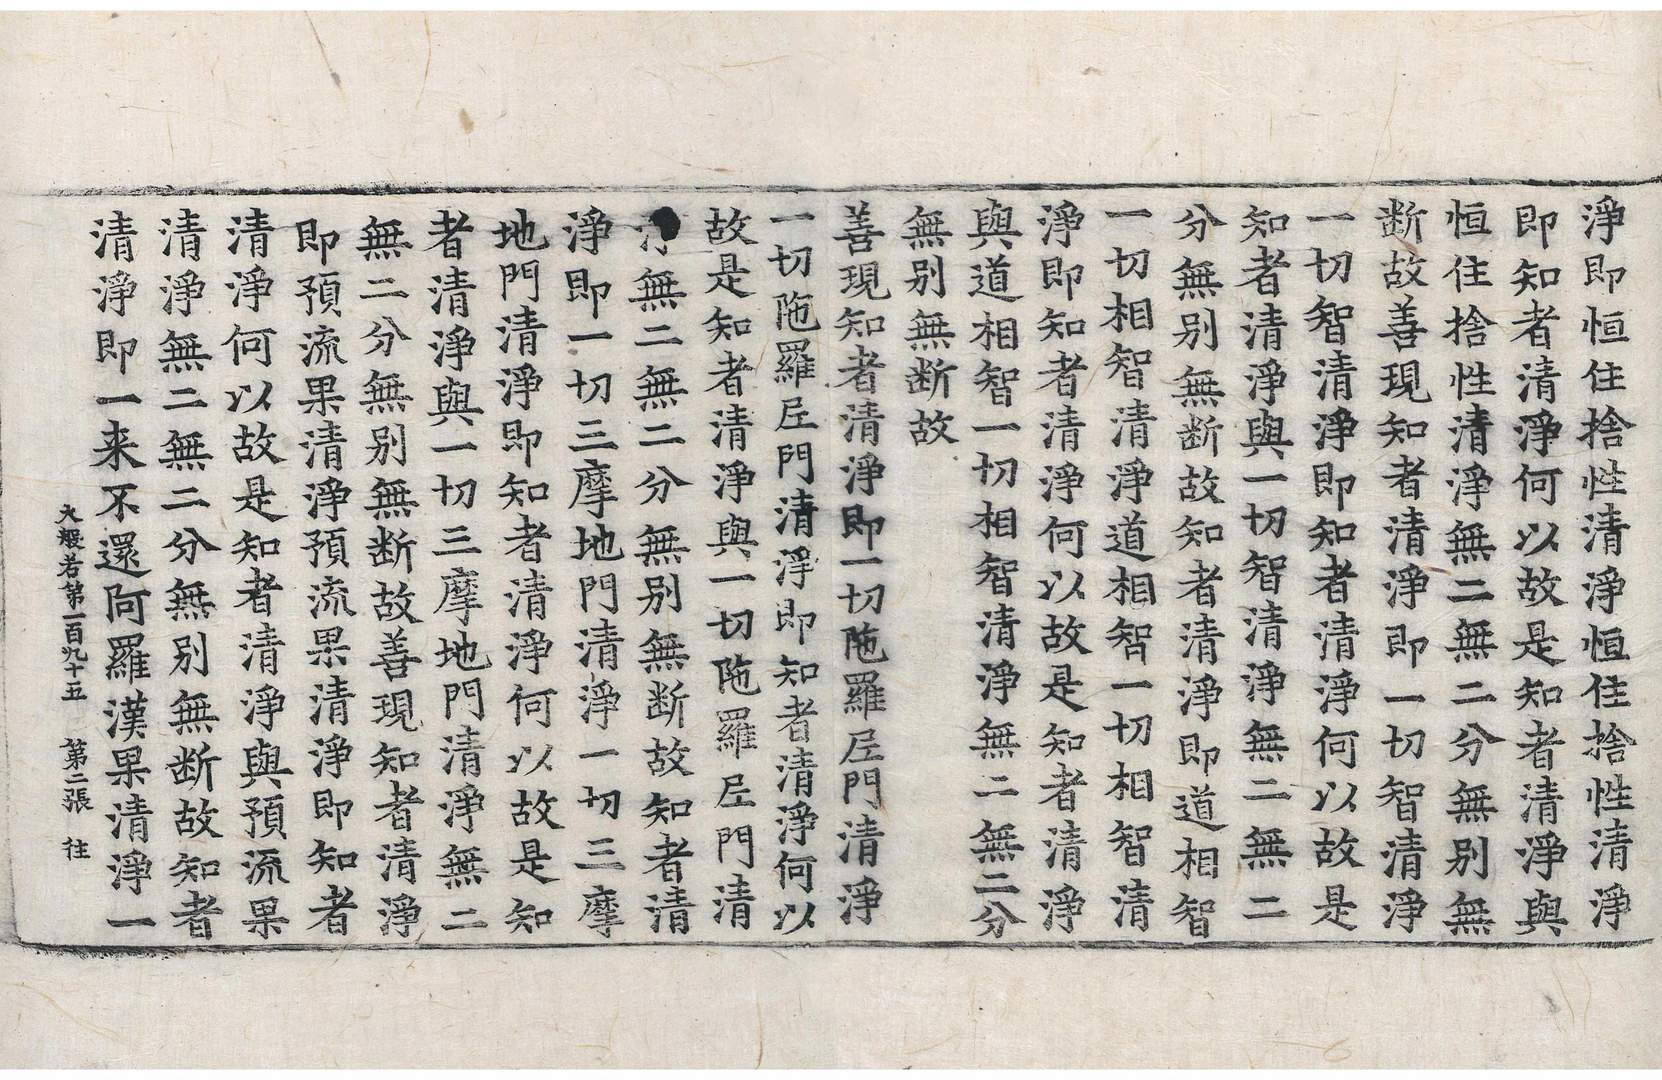 淨即恒住捨性清淨恒住捨性清淨
即知者清淨何以故是知者清淨與
恒住捨性清淨無二無二分無別無
断故善現知者清淨即一切智清淨
一切智清淨即知者清淨何以故是
知者清淨與一切智清淨無二無二
分無別無断故知者清淨即道相智
一切相智清淨道相智一切相智清
淨即知者清淨何以故是知者清淨
與道相智一切相智清淨無二無二分
無別無断故
善現知者清淨即一切陁羅尼門清淨
一切陁羅尼門清淨即知者清淨何以
故是知者清淨與一切陁羅尼門清
無二無二分無別無断故知者清
淨即一切三摩地門清淨一切三摩
地門清淨即知者清淨何以故是知
者清淨與一切三摩地門清淨無二
無二分無別無断故善現知者清淨
即預流果清淨預流果清淨即知者
清淨何以故是知者清淨與預流果
清淨無二無二分無別無断故知者
清淨即一来不還阿羅漢果清淨一
大般若第一百九十五 第二張 往